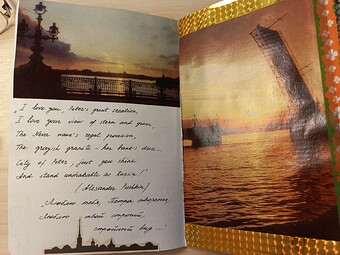 „I love you, Peter's great creation,
I love your view of stern and grace,
The Neva wave's regal procession,
The grayish granite – her bank's dress...
City of Peter, just you shine
And stand unshakable as Russia!"
(Alexander Pushkin)
„Люблю тебя, Петра творенье,
Люблю твой строгий,
стройный вид...